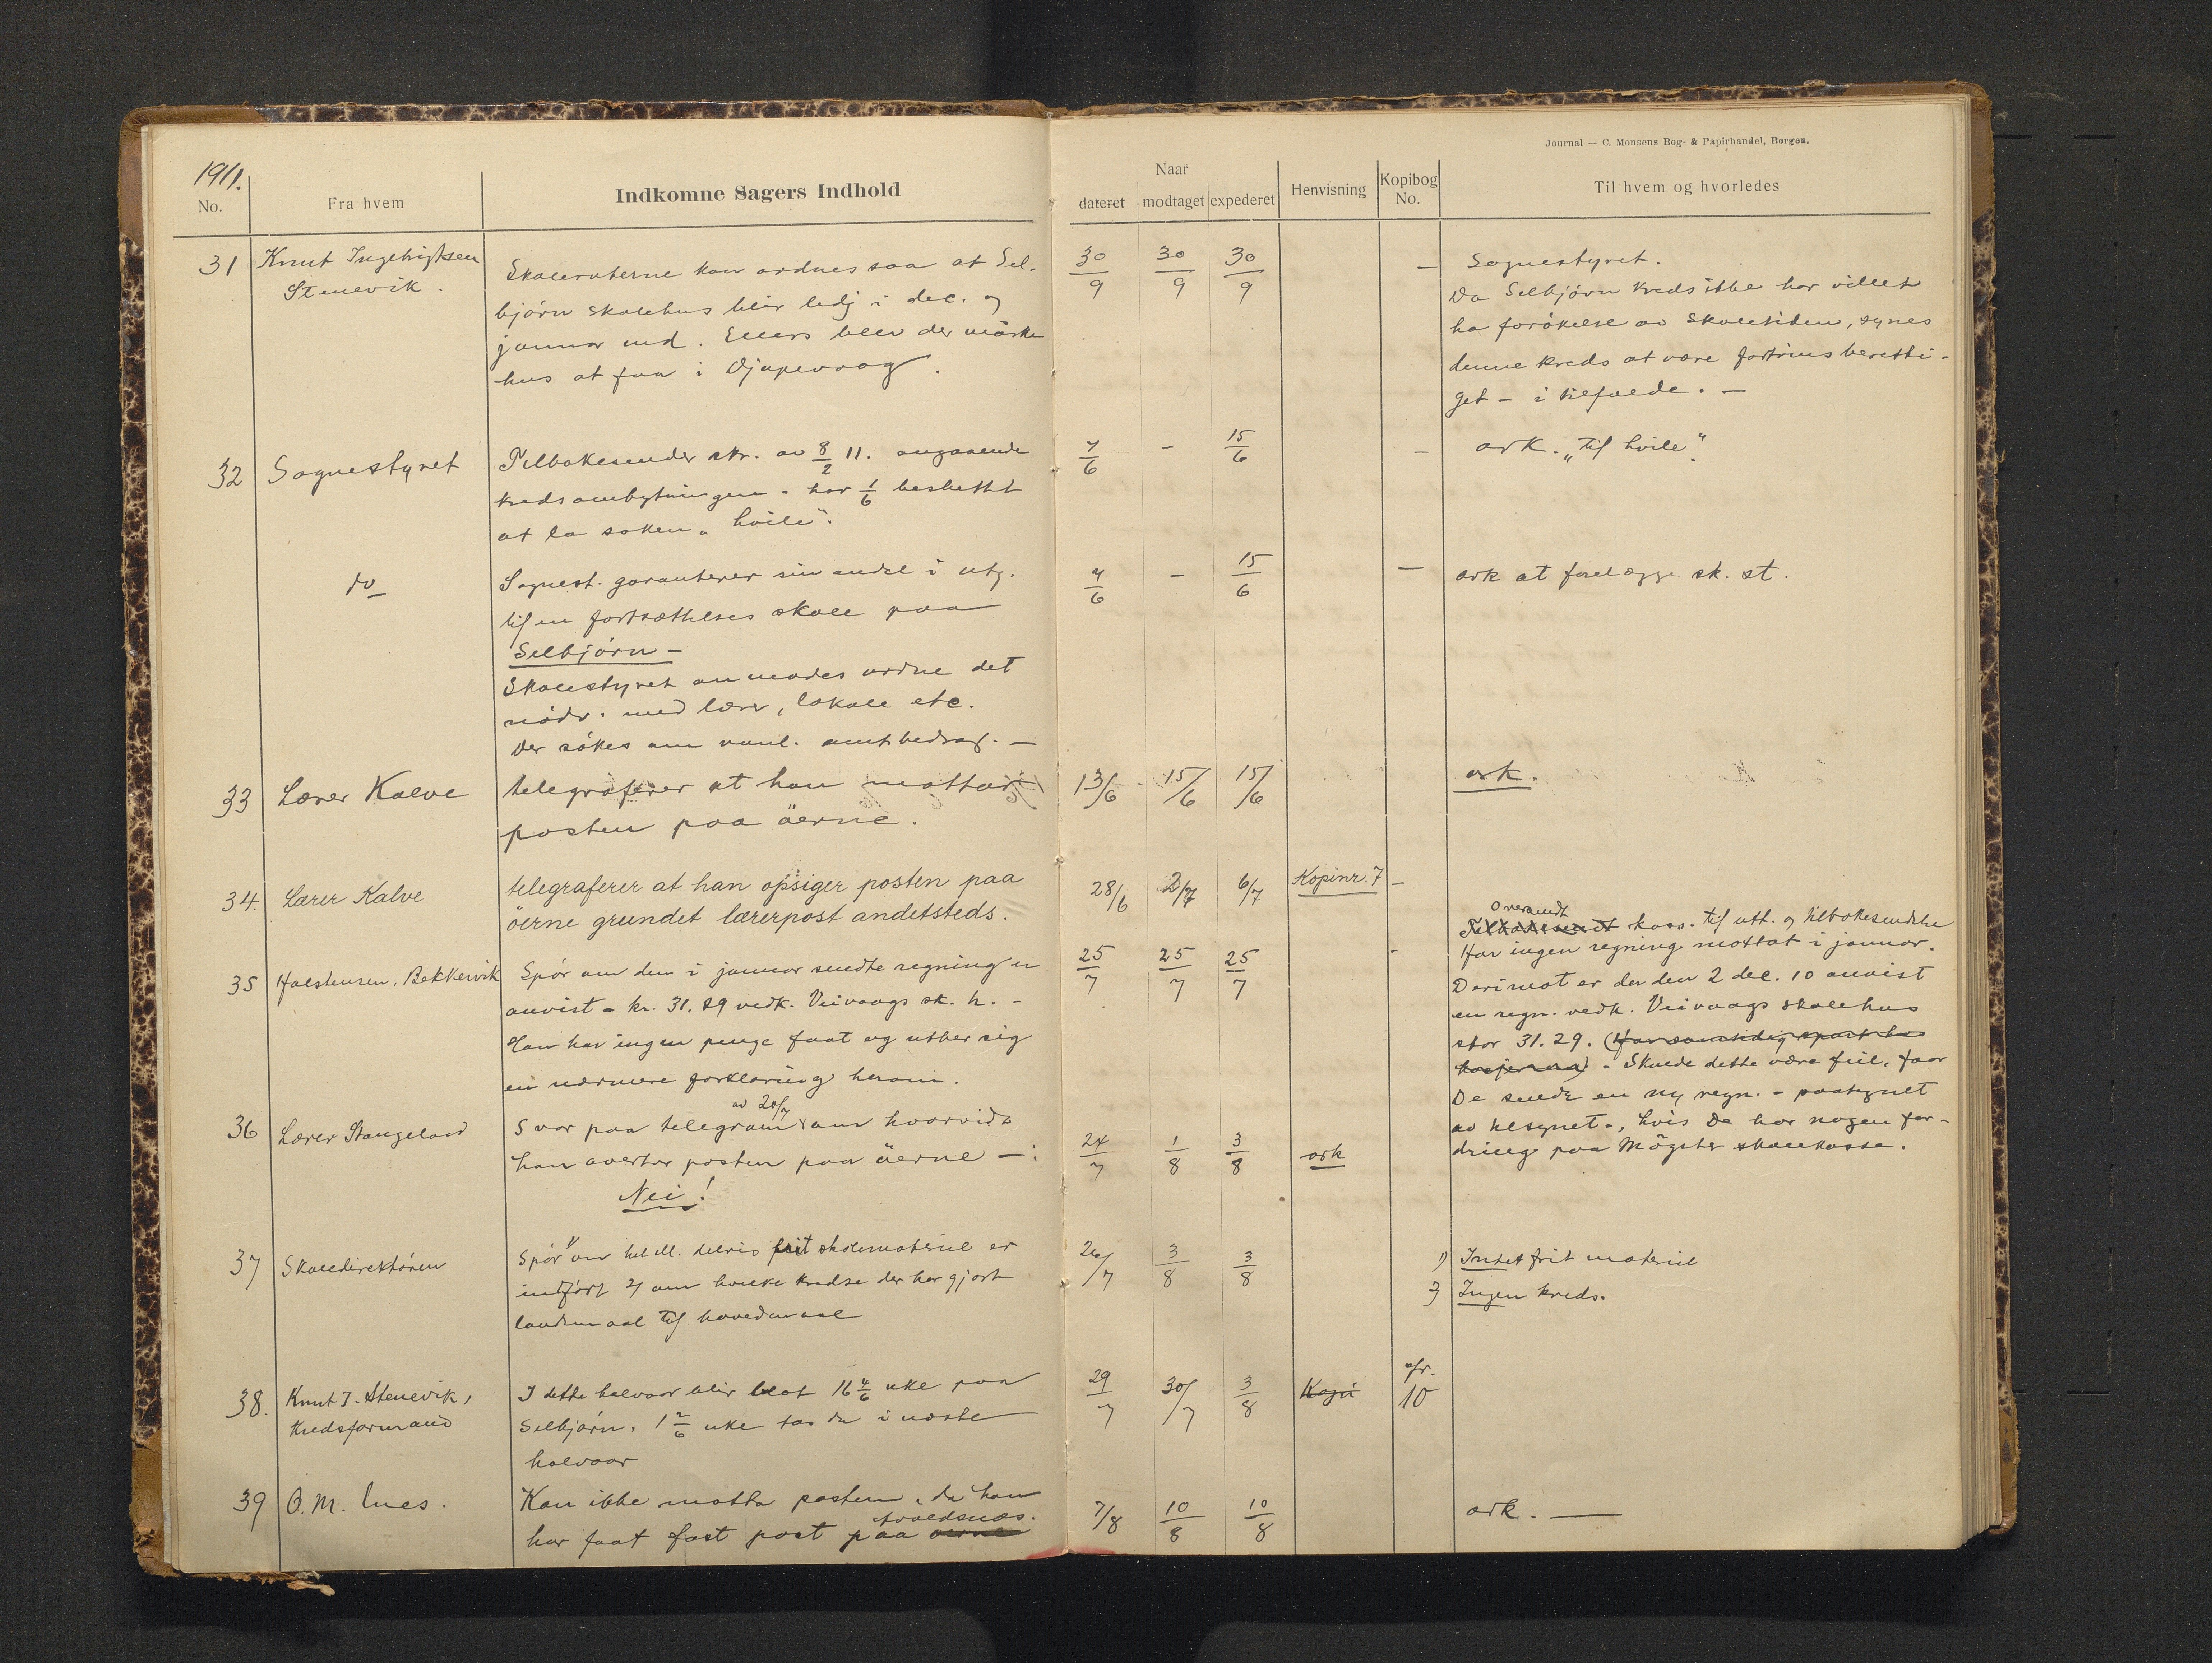 1911.
No.
Fra hvem
Indkomne Sagers Indhold
31
Knut Ingebrigtsen
Stenevik.
Skoleruterne kan ordnes saa at Sel-
bjørn skolehus blir ledj i dec. og
januar md. Ellers blev der maaske
hus at faa i Djupevaag.
32
Sognestyret
Tilbakesender skr. av 8/2 11. angaaende
kredsombytningen. har 1/6 besluttet
at la saken „hvile".
do
Sognest. garanterer sin andel i utg.
til en fortsættelses skole paa
Selbjørn –
Skolestyret anmodes ordne det
nödv. med lærer, lokale etc.
Der sökes om vanl. amtsbedrag. –
33
Lærer Kalve
telegraferer at han mottar
posten paa öerne.
34.
Lærer Kalve
telegraferer at han opsiger posten paa
öerne grundet lærerpost andetsteds.
35
Halstensen, Bekkervik
Spör om den i januar sendte regning er
anvist – kr. 31.29 vedk. Veivaags sk. h. –
Han har ingen penge faat og utber sig
en nærmere forklaring herom.
36
Lærer Stangeland
av 20/7
Svar paa telegram om hvorvidt
han overtar posten paa öerne – :
Nei!
37
Skoledirektören
Spör 1) om hel ell. delvis frit skolemateriel er
indfört 2) om hvilke kredse der har gjort
landsmaal til hovedmaal
38.
Knut I. Stenevik,
Kredsformand
I dette halvaar blir blot 16 4/6 uke paa
Selbjörn. 1 2/6 uke tas da i næste
halvaar
39
O. M. Lnes.
Kan ikke motta posten, da han
har faat fast post paa öerne
Journal — C. Monsens Bog- & Papirhandel, Bergen.
Naar
dateret
modtaget
expederet
Henvisning
Kopibog
No.
Til hvem og hvorledes
30/9 30/9 30/9 –
Sognestyret.
Da Selbjörn kreds ikke har villet
ha forökelse av skoletiden, synes
denne kreds at være fortrins beretti-
get – i tilfælde. –
7/6 – 15/6 –
ark. „til hvile".
7/6 – 15/6 –
ark at forelægge sk. st.
13/6 15/6 15/6
ark.
28/6 2/7 6/7 Kopinr. 7 –
25/7 25/7 25/7 -
Oversendt
Tilbakesendt kass. til utt. og tilbakesendelse
Har ingen regning mottat i januar.
Derimot er der den 2 dec. 10 anvist
en regn. vedk. Veivaags skolehus
stor 31.29. (Har samtidig spurt
– Skulde dette være feil, faar
De sende en ny regn. – paategnet
av tilsynet –, hvis De har nogen for-
dring paa Mögster skolekasse.
24/7 1/8 3/8 ark
26/7 3/8 3/8
1) Intet frit materiel
2) Ingen kreds.
29/7 30/7 3/8 Kopi
10
7/8 10/8 10/8
ark. —